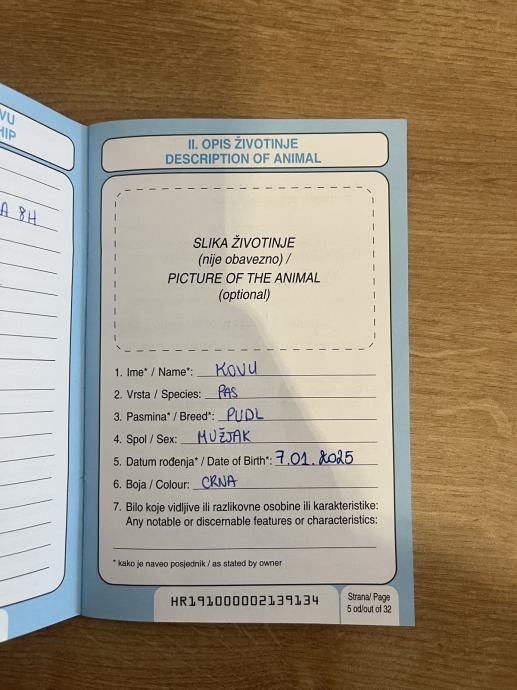 VU
HIP
A 8H
II. OPIS ŽIVOTINJE
DESCRIPTION OF ANIMAL
SLIKA ŽIVOTINJE
(nije obavezno) /
PICTURE OF THE ANIMAL
(optional)
1. Ime* / Name*: KOVU
2. Vrsta / Species: PAS
3. Pasmina* / Breed*: PUDL
4. Spol / Sex: MUŽJAK
5. Datum rođenja* / Date of Birth*: 7.01.2025
6. Boja / Colour: CRNA
7. Bilo koje vidljive ili razlikovne osobine ili karakteristike:
Any notable or discernable features or characteristics:
* kako je naveo posjednik / as stated by owner
HR191000002139134
Strana/ Page
5 od/out of 32